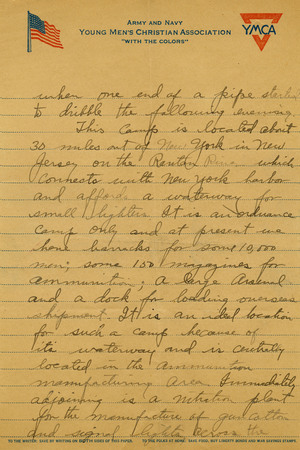 ARMY AND NAVY
YOUNG MEN'S CHRISTIAN ASSOCIATION
"WITH THE COLORS"
YMCA
when one end of a pipe
to dribble the following evening.
This Camp is located about
30 miles out of New York in New
Jersey on the which
connects with New York harbor
and affords a waterway for
small lighters. It is an ordnance
camp only and at present we
have barracks for some 10,000
men; some 150 magazines for
ammunition; a large Arsenal
and a dock for loading overseas
shipment. It is an ideal location
for such a camp because of
its waterway and is centrally
located in the ammunition
manufacturing area. Immediately
adjoining is a plant
for the manufacture of gun cotton
and signal lights across the
TO THE WRITER: SAVE BY WRITING ON BOTH SIDES OF THIS PAPER.
TO THE FOLKS AT HOME: SAVE FOOD, BUY LIBERTY BONDS AND WAR SAVINGS STAMPS.